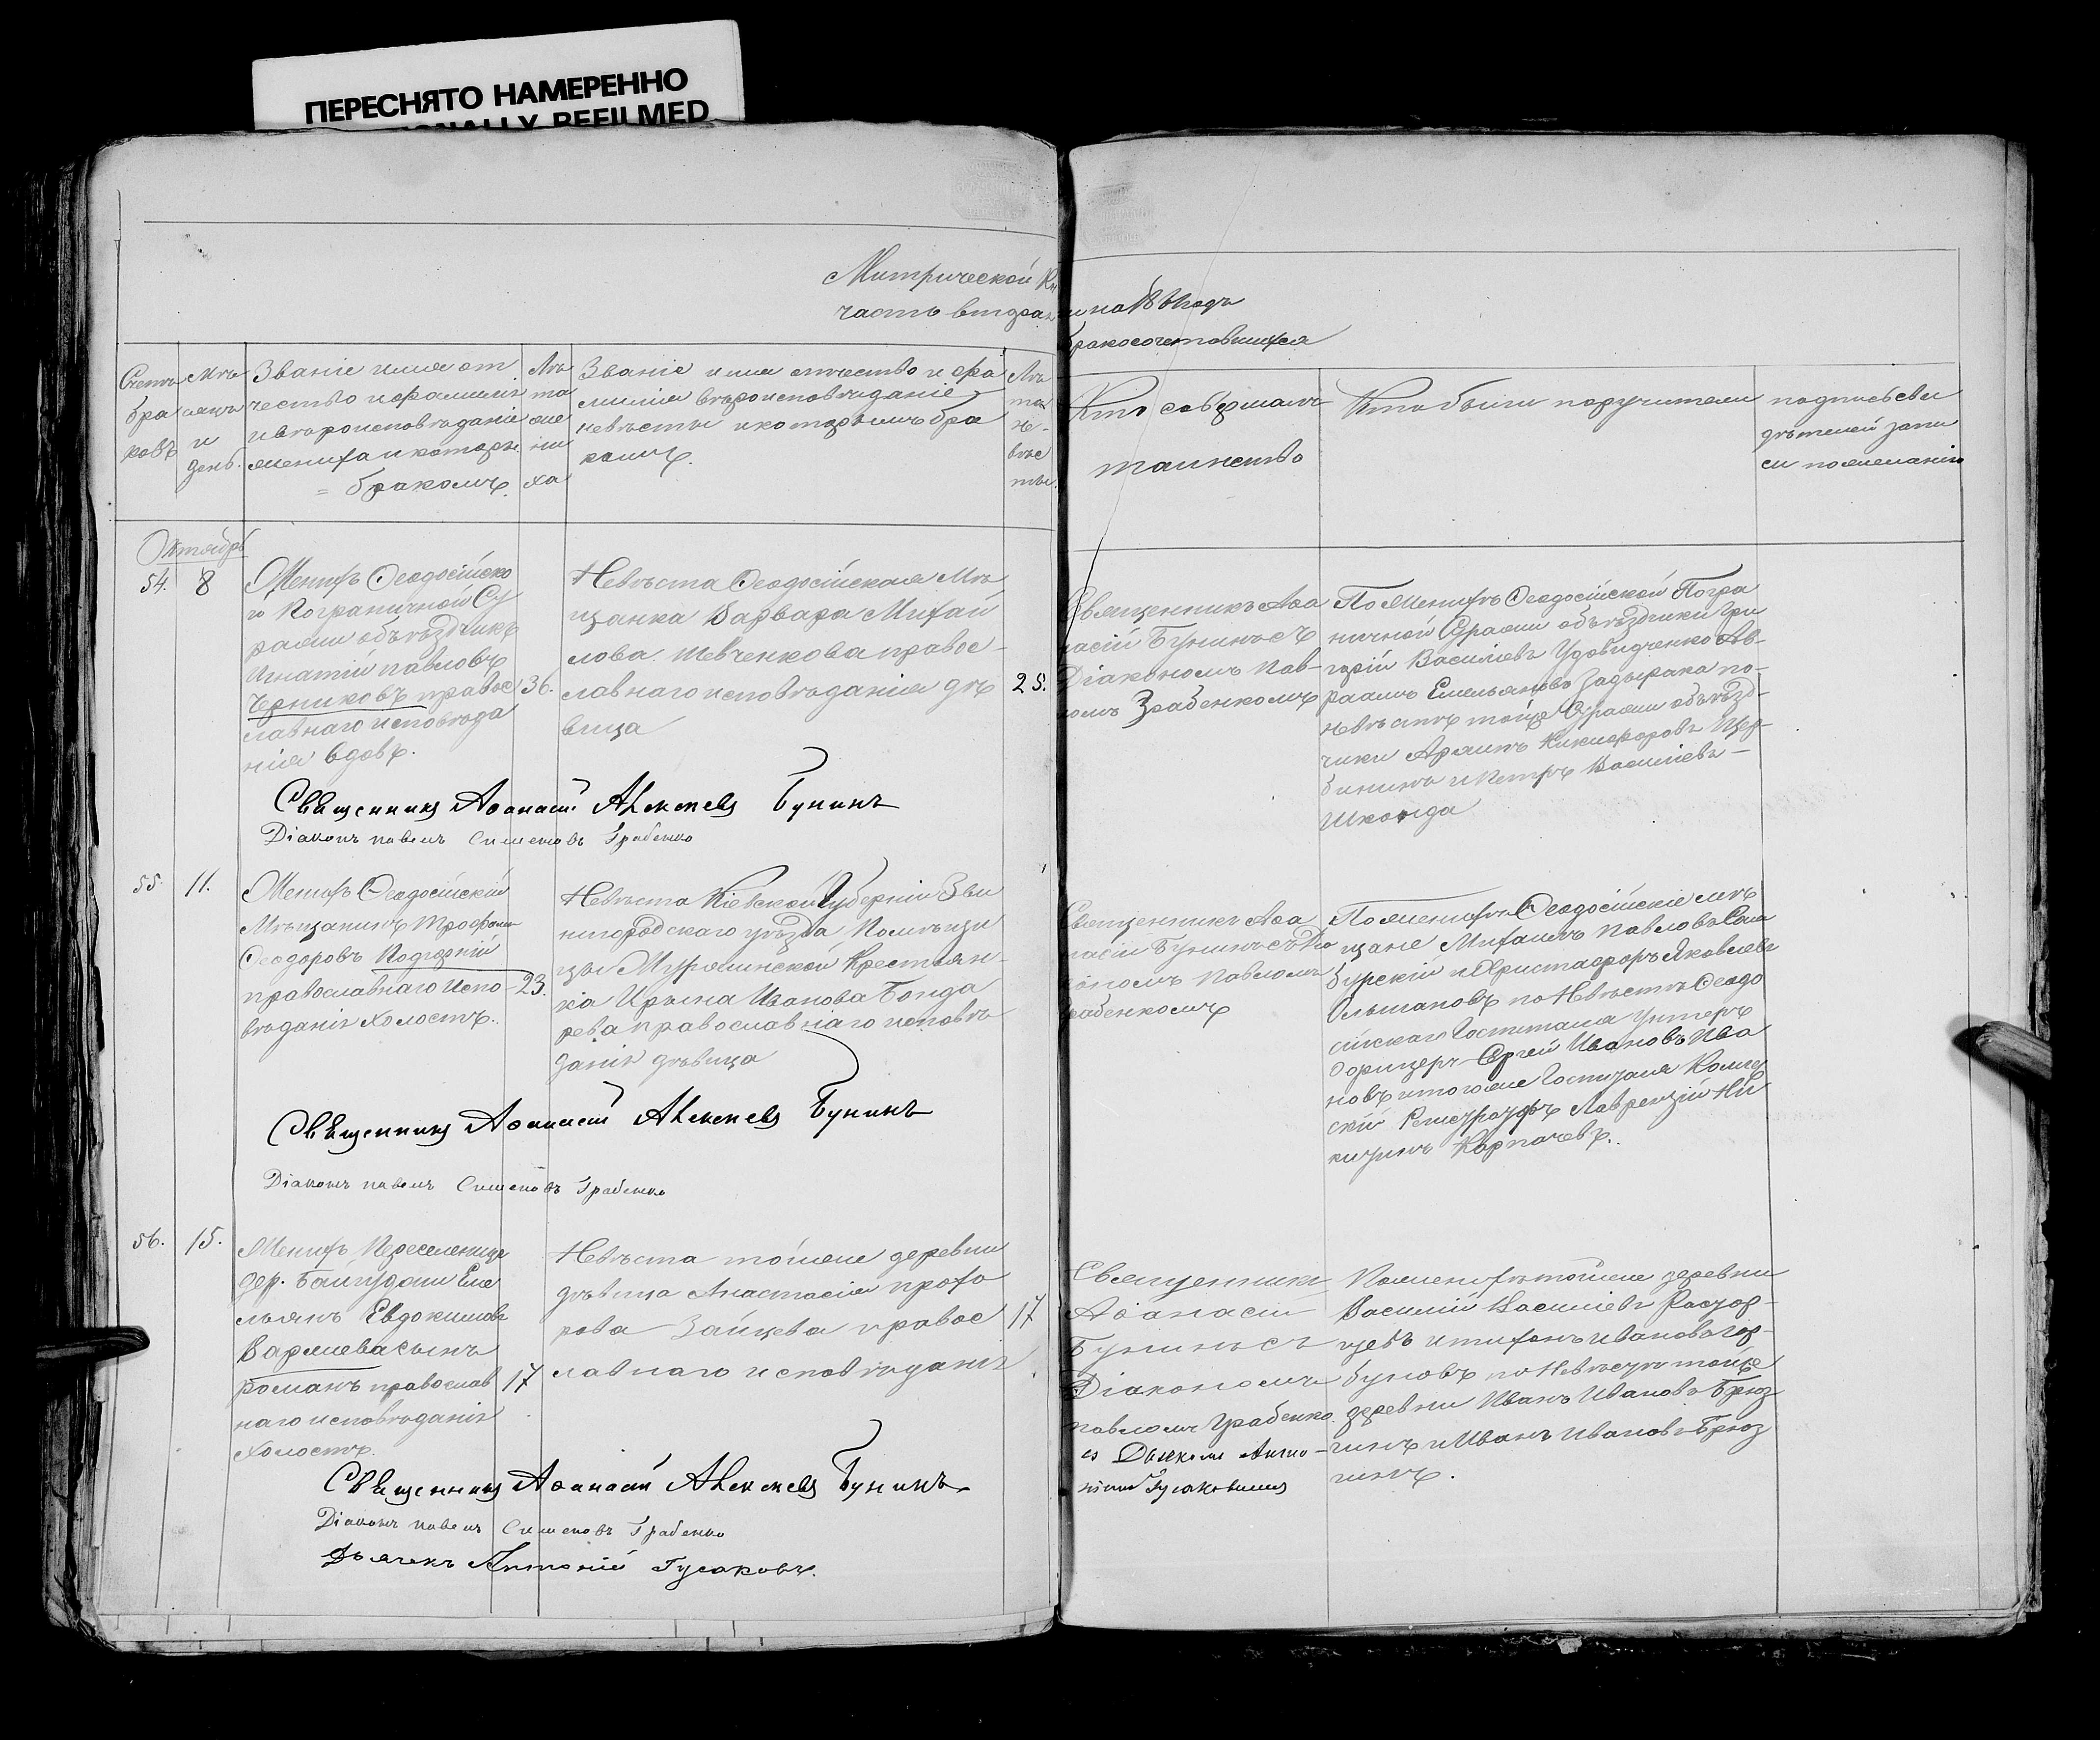 ПЕРЕСНЯТО НАМЕРЕННО
REFILMED
Митрической
часть вторая
на
бракосочетовшихся
Счетъ
бра
ковъ
Мѣ
сяцъ
и
день.
Званіе имя от
чество и фамилія
и вѣроисповѣданіе
жениха и которы
= бракомъ.
Лѣ
та
же
ни
ха
Званіе имя отчество и фа
милія вѣроисповѣданіе
невѣсты и которымъ бра
комъ.
Лѣ
та
не-
вѣс
ты.
Кто совершалъ
таинство
Кто были поручители
подпись сви
дѣтелей запи
си по желанію
Октябрь
54.
8
Женихъ Ѳеодосійско
й Пограничной Ст
ражи объѣздчикъ
Игнатій павловъ
Черниковъ правос
лавнаго исповѣда
нія вдовъ.
36.
Невѣста Ѳеодосійская Мѣ
щанка Варвара Михай
лова Шевченкова правос-
лавнаго исповѣданія дѣ
вица
25.
Священникъ Аѳа
насій Бунинъ съ
Діакономъ Пав-
ломъ Грабенкомъ
По Женихѣ Ѳеодосійской Погра
ничной Стражи объѣздчики Гри
горій Василіевъ Удовидченко Ав-
раамъ Емельяновъ Задырака по-
невѣстѣ тойже Стражи объѣзд-
чики Никифоровъ Щер-
бининъ и Петръ Василіевъ-
Шконда
Священникъ Аѳанасій Алексѣевъ Бунинъ
Діаконъ павелъ Симеоновъ Грабенко
55.
11.
Женихъ Ѳеодосійскій
Мѣщанинъ Трофимъ
Ѳеодоровъ
православнаго испо
вѣданія холостъ.
23.
Невѣста Кіевской Губерніи Зви
нигородскаго уѣзда Помѣщи
цы Крестьян-
ка Ирина Иванова Бонда
рева православнаго исповѣ
данія дѣвица
Священникъ Аѳа
насій Бунинъ съ Ді
акономъ Павломъ
Грабенкомъ
По женихѣ Ѳеодосійскіе мѣ
щане Михаилъ Павловъ
и Христофоръ Яковлевъ
по Невѣстѣ Ѳеодо
сійскаго Госпиталя Унтеръ
офицеръ Сергей Ивановъ Ива
новъ и тогоже Госпиталя
Лаврентій Ни
китинъ Карпачевъ.
Священникъ Аѳанасій Алексѣевъ Бунинъ
Діаконъ павелъ Симеоновъ Грабенко
56.
15.
Женихъ Переселенца
дер. Еме
льянъ Евдокимовъ
сынъ
романъ православ
наго исповѣданія
холостъ.
17
Невѣста тойже деревни
дѣвица Анастасія прохо
рова Зайцева правос
лавнаго исповѣданія
17
Священникъ
Аѳанасій
Бунинъ съ
Діакономъ
павломъ Грабенко
и Дьячкомъ Анто-
ніемъ Гусаковымъ
По женихѣ тойже деревни
Василій Василіевъ
и тихонъ Ивановъ Гор-
буновъ по Невѣстѣ тойже
деревни Иванъ Ивановъ Брюз
гинъ и Иванъ Ивановъ Брюз
гинъ.
Священникъ Аѳанасій Алексѣевъ Бунинъ
Діаконъ павелъ Симеоновъ Грабенко
Дьячекъ Антоній Гусаковъ.